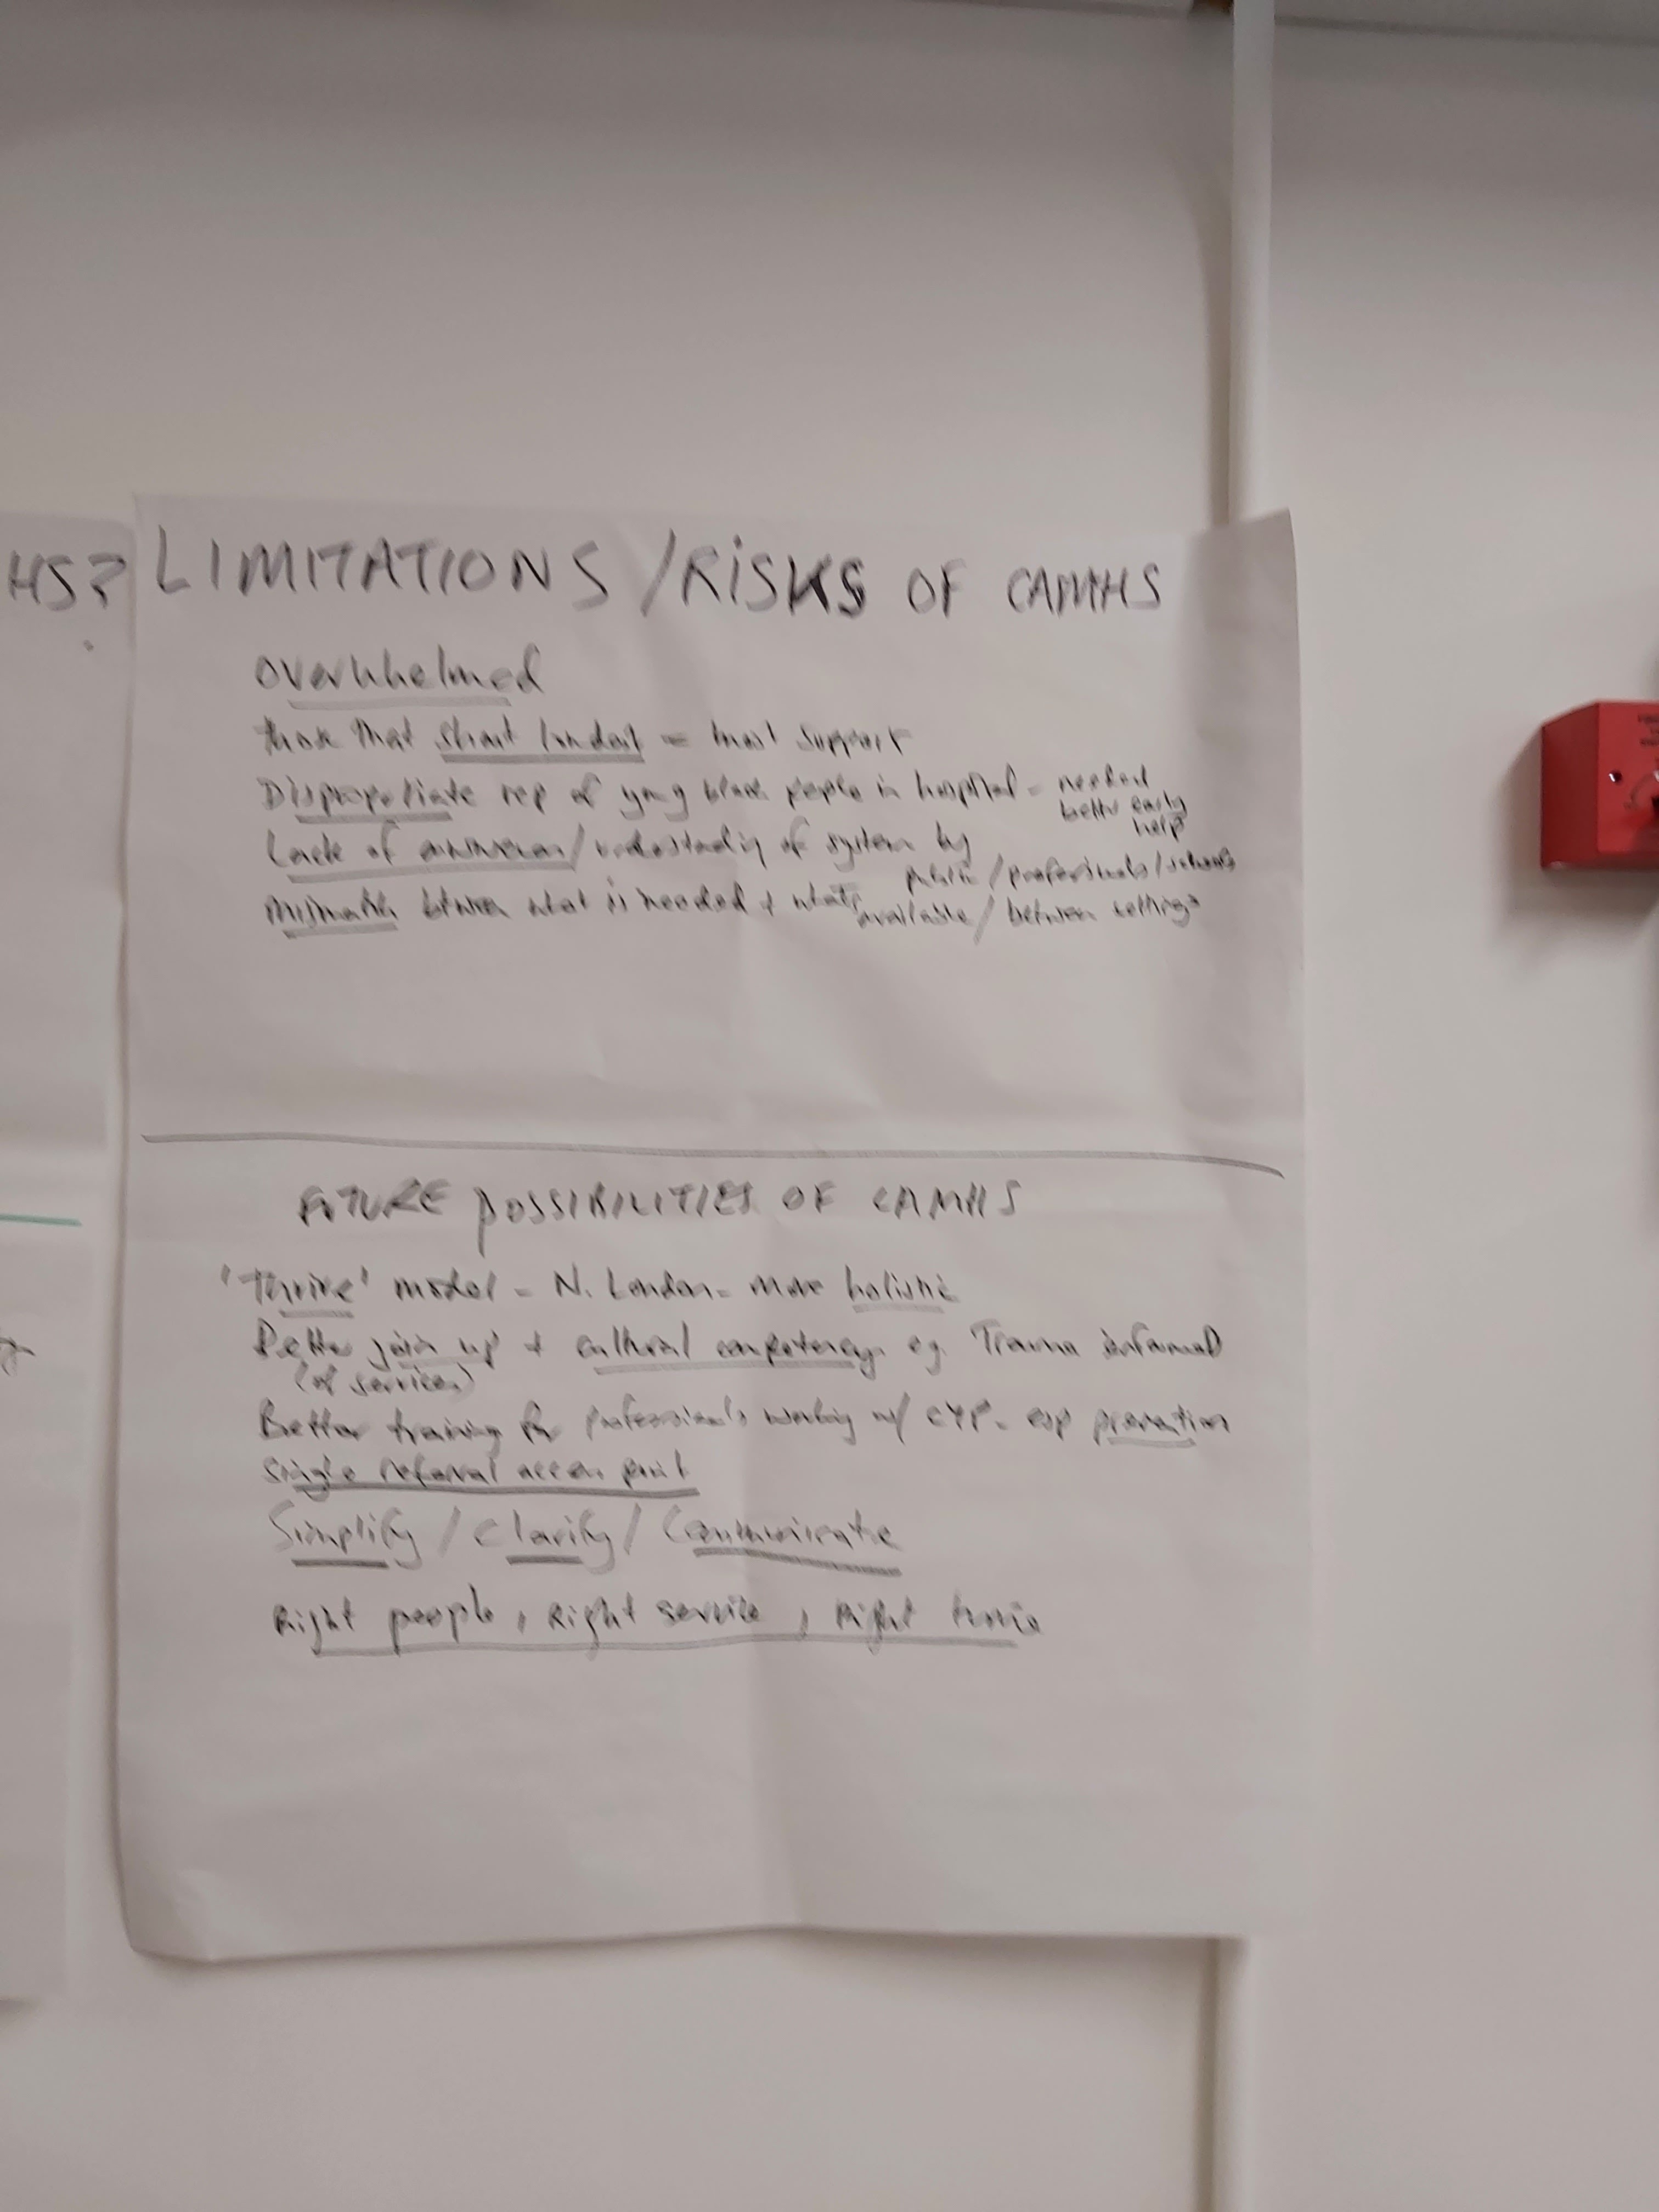 HS?
LIMITATIONS / RISKS OF CAMHS
Overwhelmed
those that shout loudest = most support
Disproportiate rep of young black people in hospital - needed
better early
help
Lack of awareness / understanding of system by
public / professionals / schools
Mismatch between what is needed + what's
available / between settings
FUTURE POSSIBILITIES OF CAMHS
'Thrive' model - N. London - more holistic
Better join up + cultural competency eg. Trauma informed
(of services)
Better training for professionals working w/ CYP - esp prevention
Single referral access point
Simplify / Clarify / Communicate
Right people, Right service, Right time